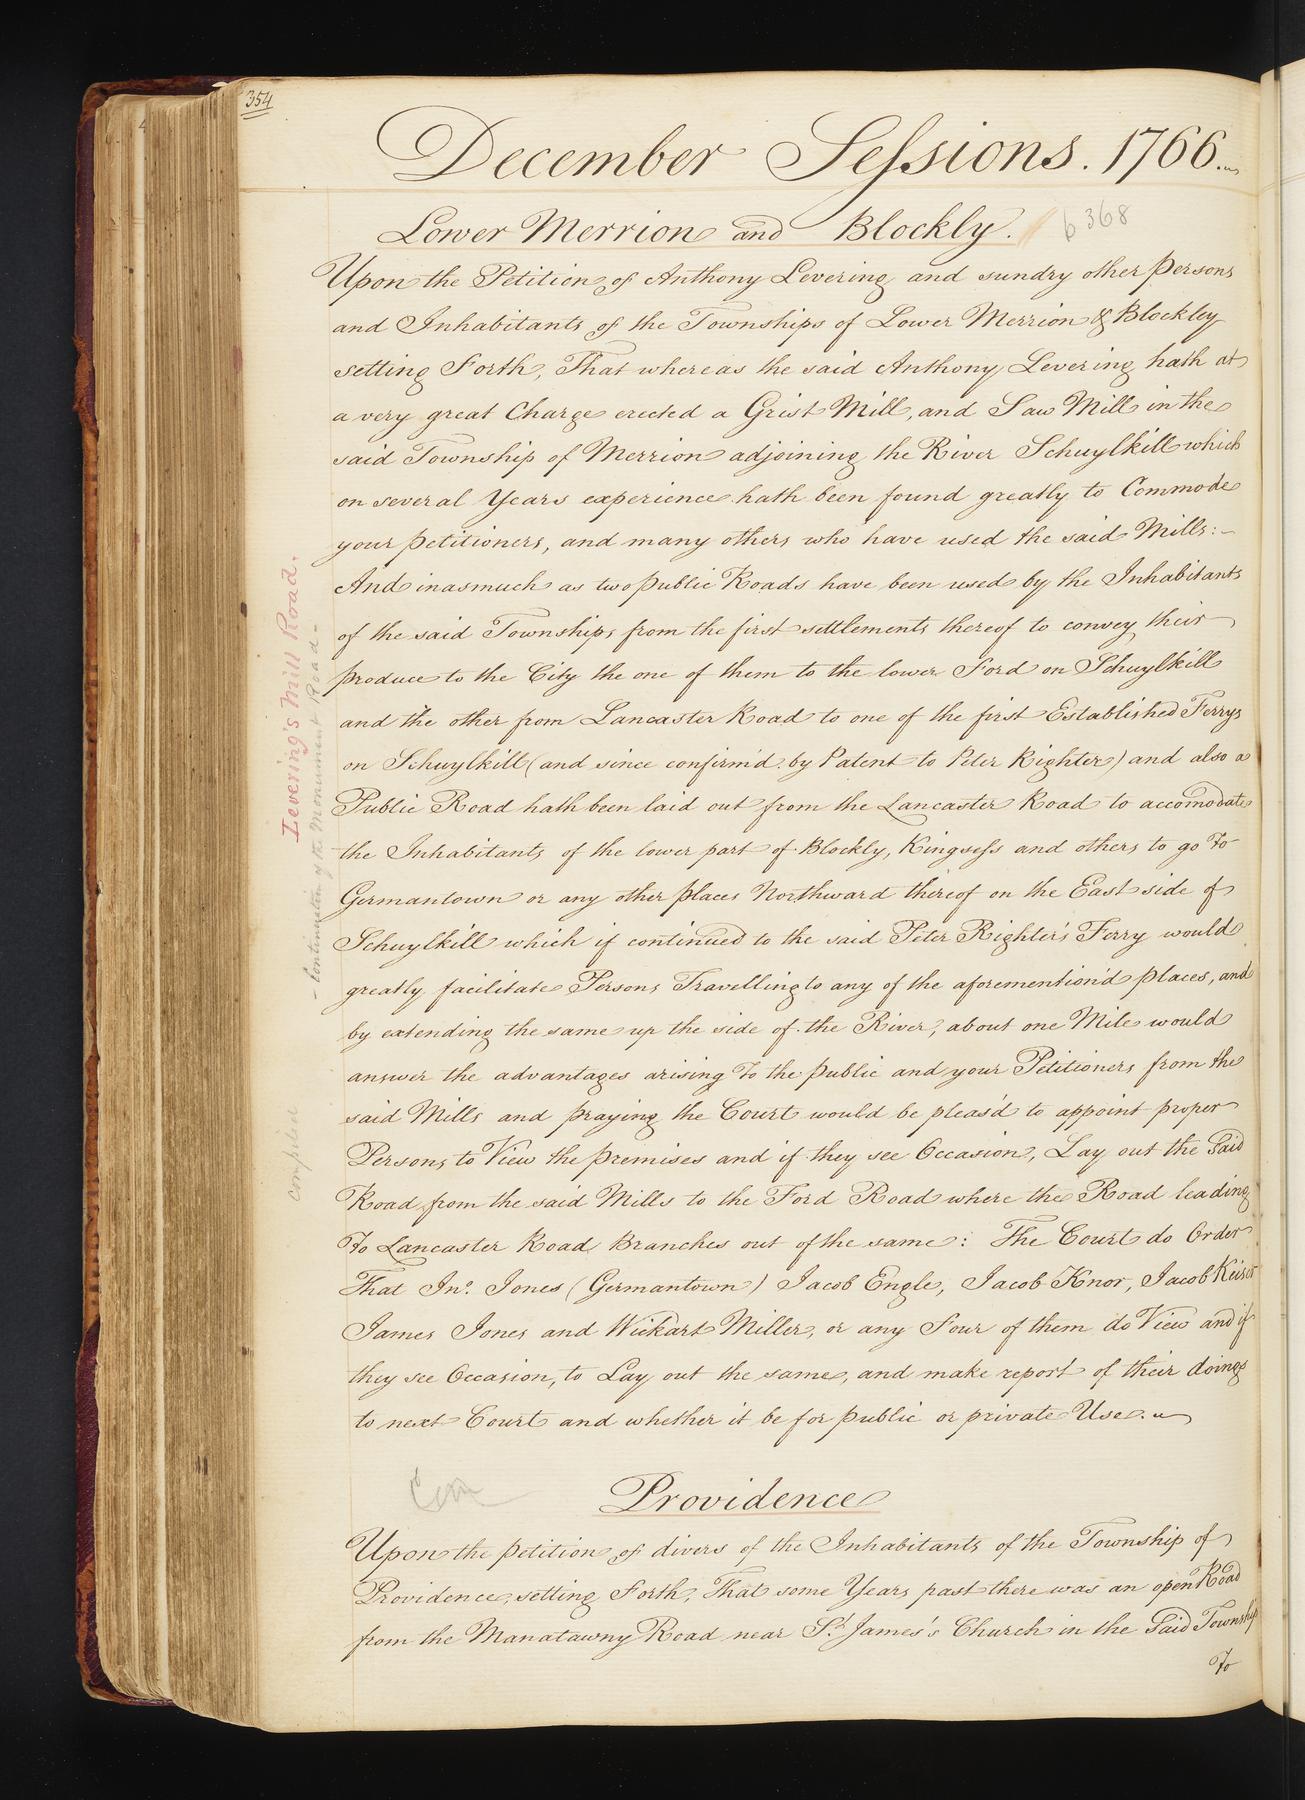 354
December Sessions. 1766.
Lower Merrion and Blockly.
p 368
Upon the Petition of Anthony Levering and sundry other persons
and Inhabitants of the Townships of Lower Merrion & Blockley
setting Forth, That whereas the said Anthony Levering hath at
a very great Charge erected a Grist Mill, and Saw Mill in the
said Township of Merrion adjoining the River Schuylkill which
on several Years experience hath been found greatly to Commode
your petitioners, and many others who have used the said Mills:-
And inasmuch as two public Roads have been used by the Inhabitants
of the said Townships from the first settlements thereof to convey their
produce to the City the one of them to the lower Ford on Schuylkill
and the other from Lancaster Road to one of the first Established Ferrys
on Schuylkill (and since confirm'd by Patent to Peter Righter) and also a
Public Road hath been laid out from the Lancaster Road to accomodate
the Inhabitants of the lower part of Blockly, Kingsess and others to go to
Germantown or any other places Northward thereof on the East side of
Schuylkill which if continued to the said Peter Righter's Ferry would
greatly facilitate Persons Travelling to any of the aforemention'd places, and
by extending the same up the side of the River, about one Mile would
answer the advantages arising to the public and your Petitioners from the
said Mills and praying the Court would be pleas'd to appoint proper
Persons to View the premises and if they see Occasion, Lay out the said
Road from the said Mills to the Ford Road where the Road leading
to Lancaster Road Branches out of the same: The Court do Order
That Jno. Jones (Germantown) Jacob Engle, Jacob Knor, Jacob Keiser
James Jones and Wickart Miller, or any Four of them do View and if
they see Occasion, to Lay out the same, and make report of their doings
to next Court and whether it be for public or private Use.
Levering's Mill Road.
- Continuation of the Monument Road -
compiled
Com
Providence
Upon the petition of divers of the Inhabitants of the Township of
Providence, setting Forth, That some Years past there was an open Road
from the Manatawny Road near St. James's Church in the said Township
To